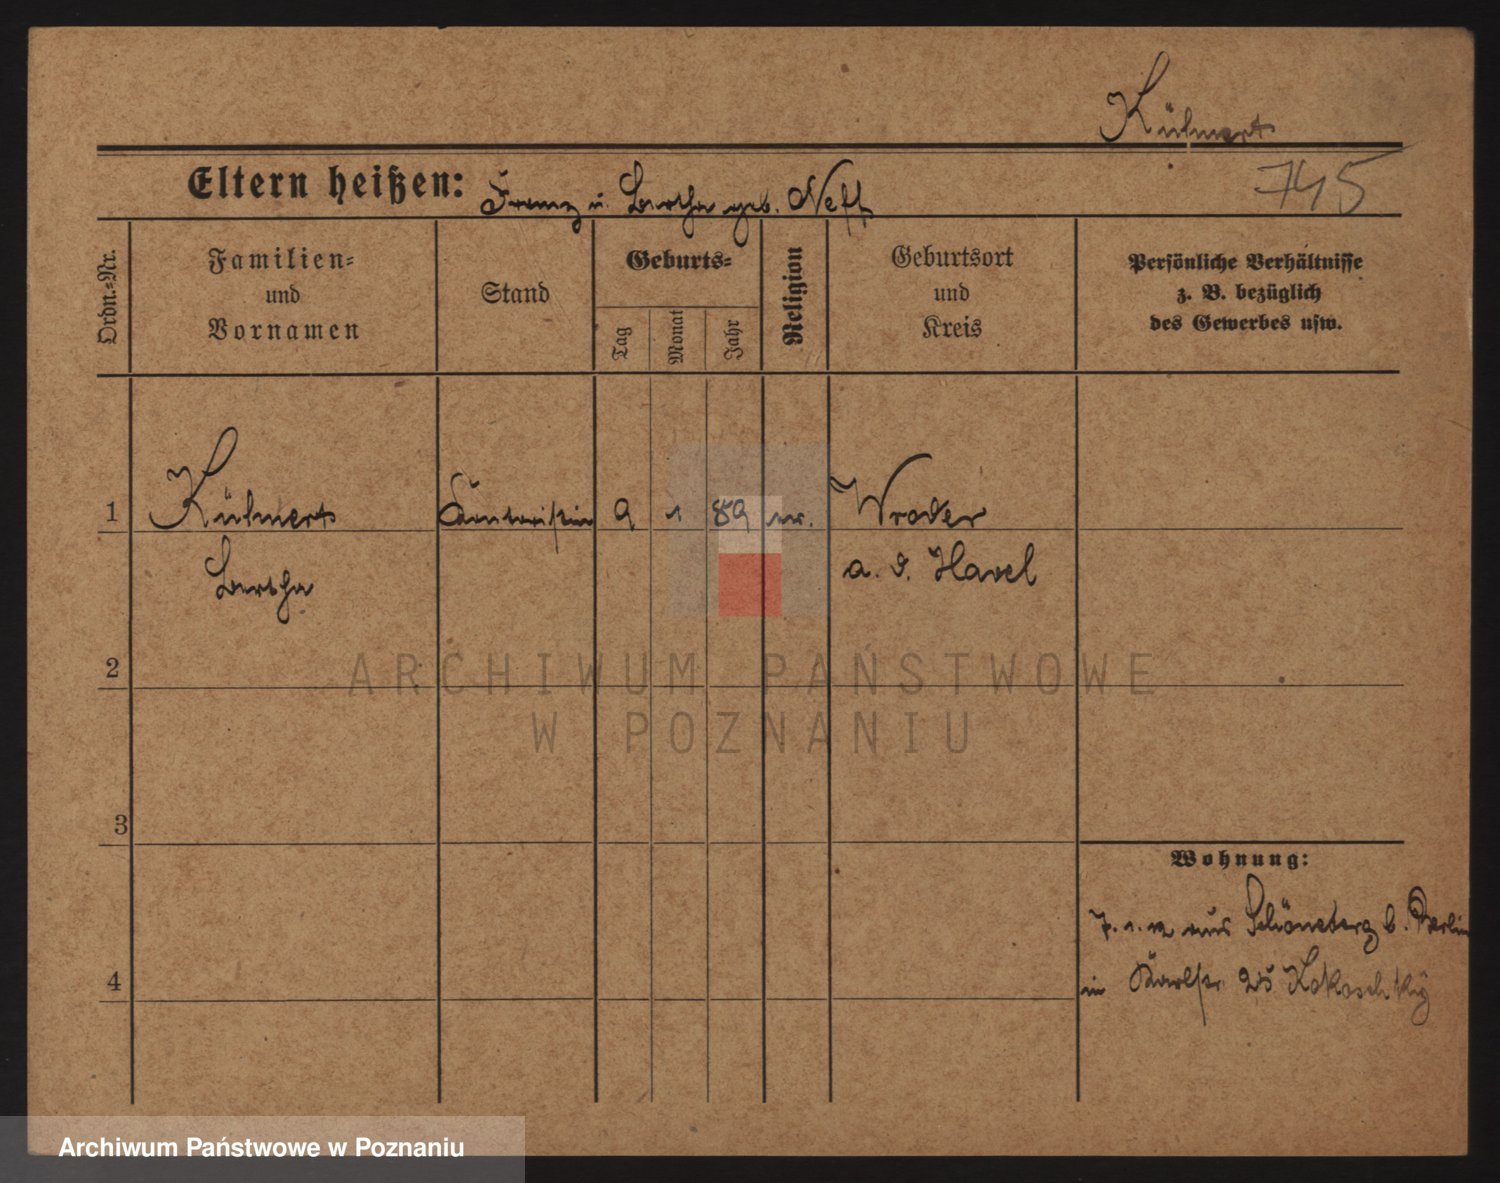 Kühnert
745
Eltern heißen: Franz u. Bertha geb. Neft
Ordn.-Nr.
Familien-
und
Vornamen
Stand
Geburts-
Tag
Monat
Jahr
Religion
Geburtsort
und
Kreis
Persönliche Verhältnisse
z. B. bezüglich
des Gewerbes usw.
1
Kühnert
9 1 89
a. d. Havel
Bertha
2
3
4
Wohnung:
7. 1. 12 aus Schöneberg b. Berlin
in Karlstr. 25
ARCHIWUM PAŃSTWOWE
W POZNANIU
Archiwum Państwowe w Poznaniu